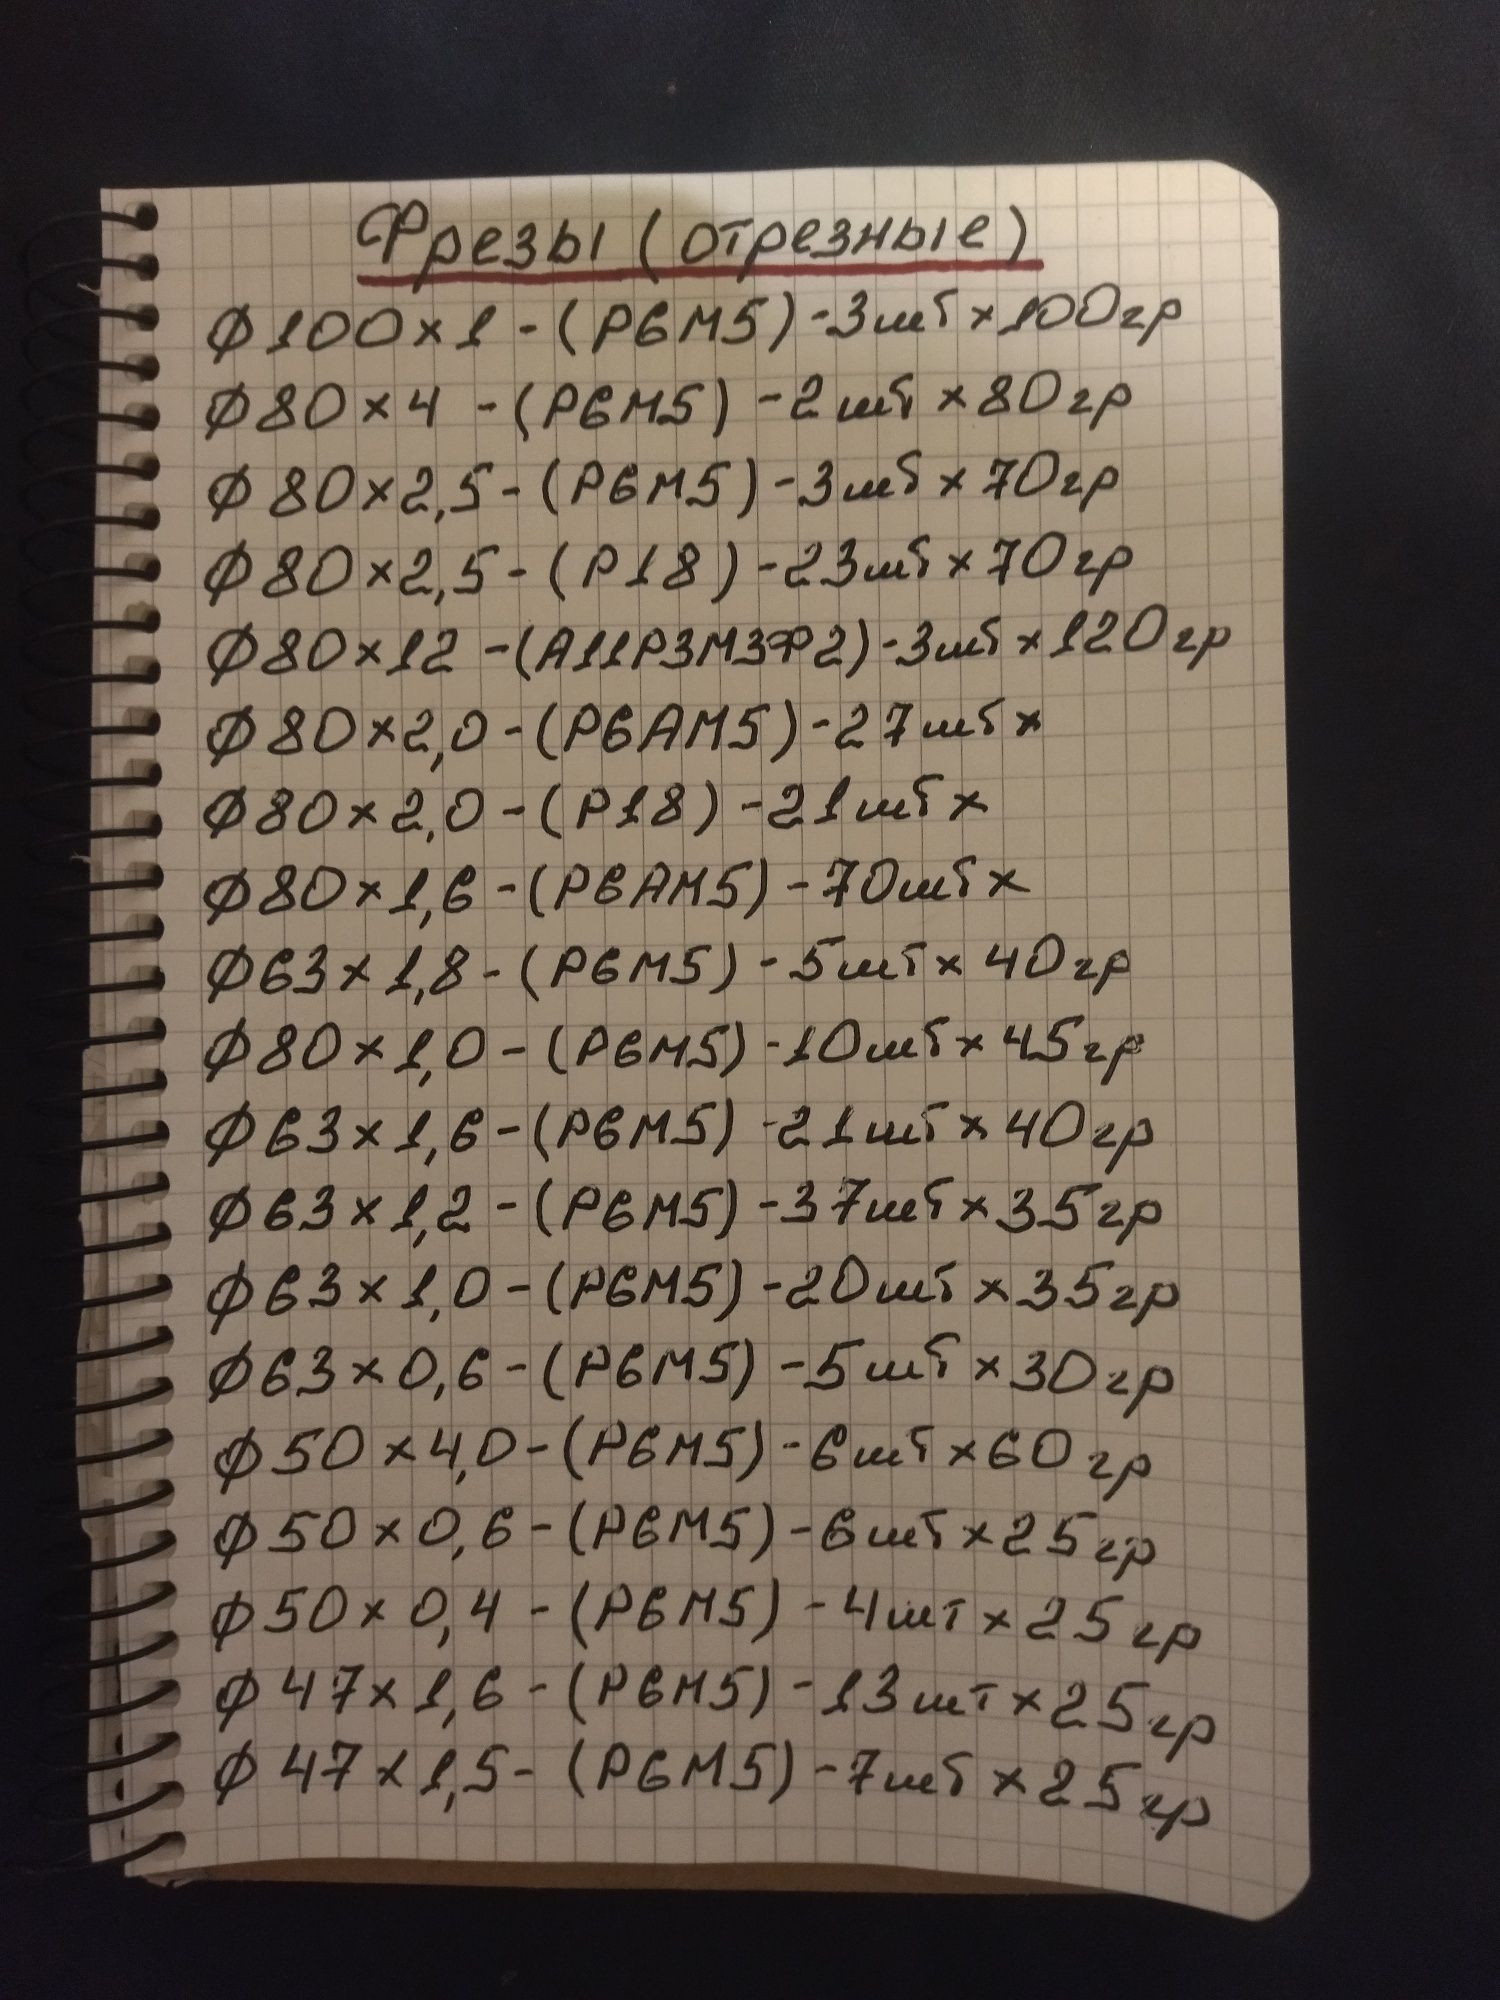 Фрезы (отрезные)
Ф100×1 - (Р6М5) - 3шт × 100гр
Ф80×4 - (Р6М5) - 2шт × 80гр
Ф80×2,5 - (Р6М5) - 3шт × 70гр
Ф80×2,5 - (Р18) - 23шт × 70гр
Ф80×12 - (А11Р3М3Ф2) - 3шт × 120гр
Ф80×2,0 - (Р6АМ5) - 27шт ×
Ф80×2,0 - (Р18) - 21шт ×
Ф80×1,6 - (Р6АМ5) - 70шт ×
Ф63×1,8 - (Р6М5) - 5шт × 40гр
Ф80×1,0 - (Р6М5) - 10шт × 45гр
Ф63×1,6 - (Р6М5) - 21шт × 40гр
Ф63×1,2 - (Р6М5) - 37шт × 35гр
Ф63×1,0 - (Р6М5) - 20шт × 35гр
Ф63×0,6 - (Р6М5) - 5шт × 30гр
Ф50×4,0 - (Р6М5) - 6шт × 60гр
Ф50×0,6 - (Р6М5) - 6шт × 25гр
Ф50×0,4 - (Р6М5) - 4шт × 25гр
Ф47×1,6 - (Р6М5) - 13шт × 25гр
Ф47×1,5 - (Р6М5) - 7шт × 25гр